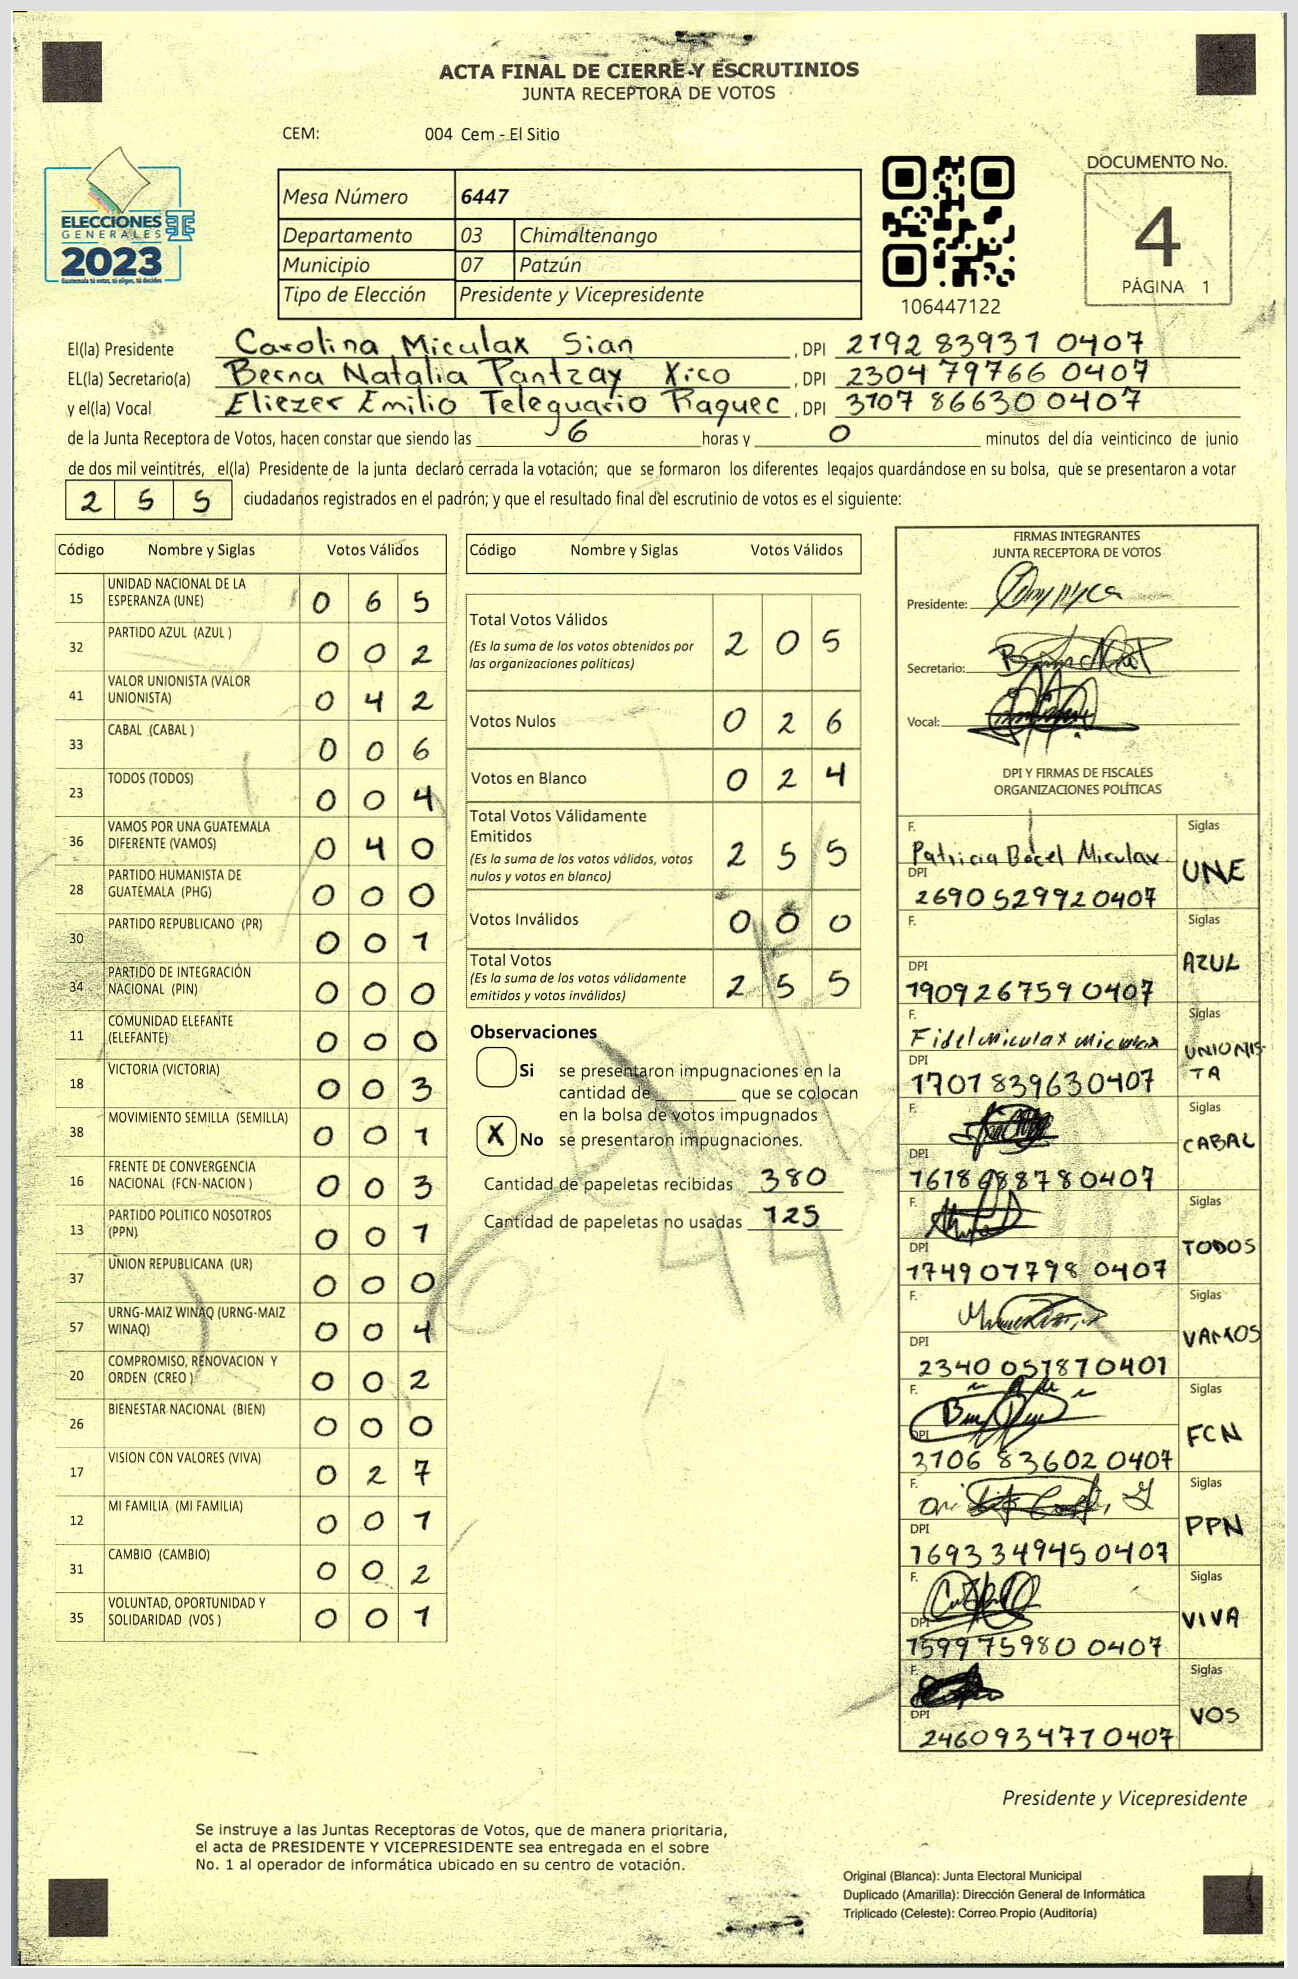 ACTA FINAL DE CIERRE Y ESCRUTINIOS
JUNTA RECEPTORA DE VOTOS
CEM: 004 Cem - El Sitio
ELECCIONES
GENERALES
2023
Guatemala tú votas, tú eliges, tú decides
Mesa Número 6447
Departamento 03 Chimaltenango
Municipio 07 Patzún
Tipo de Elección Presidente y Vicepresidente
106447122
DOCUMENTO No.
4
PÁGINA 1
El(la) Presidente Carolina Miculax Sian , DPI 2192 83931 0407
EL(la) Secretario(a) Berna Natalia Pantzay Xico , DPI 2304 79766 0407
y el(la) Vocal Eliezer Emilio Teleguario Raquec , DPI 3107 86630 0407
de la Junta Receptora de Votos, hacen constar que siendo las 6 horas y 0 minutos del día veinticinco de junio
de dos mil veintitrés, el(la) Presidente de la junta declaró cerrada la votación; que se formaron los diferentes legajos guardándose en su bolsa, que se presentaron a votar
2 5 5 ciudadanos registrados en el padrón; y que el resultado final del escrutinio de votos es el siguiente:
Código Nombre y Siglas Votos Válidos
15 UNIDAD NACIONAL DE LA ESPERANZA (UNE) 0 6 5
32 PARTIDO AZUL (AZUL ) 0 0 2
41 VALOR UNIONISTA (VALOR UNIONISTA) 0 4 2
33 CABAL (CABAL ) 0 0 6
23 TODOS (TODOS) 0 0 4
36 VAMOS POR UNA GUATEMALA DIFERENTE (VAMOS) 0 4 0
28 PARTIDO HUMANISTA DE GUATEMALA (PHG) 0 0 0
30 PARTIDO REPUBLICANO (PR) 0 0 1
34 PARTIDO DE INTEGRACIÓN NACIONAL (PIN) 0 0 0
11 COMUNIDAD ELEFANTE (ELEFANTE) 0 0 0
18 VICTORIA (VICTORIA) 0 0 3
38 MOVIMIENTO SEMILLA (SEMILLA) 0 0 1
16 FRENTE DE CONVERGENCIA NACIONAL (FCN-NACION ) 0 0 3
13 PARTIDO POLITICO NOSOTROS (PPN) 0 0 1
37 UNION REPUBLICANA (UR) 0 0 0
57 URNG-MAIZ WINAQ (URNG-MAIZ WINAQ) 0 0 4
20 COMPROMISO, RENOVACION Y ORDEN (CREO ) 0 0 2
26 BIENESTAR NACIONAL (BIEN) 0 0 0
17 VISION CON VALORES (VIVA) 0 2 7
12 MI FAMILIA (MI FAMILIA) 0 0 1
31 CAMBIO (CAMBIO) 0 0 2
35 VOLUNTAD, OPORTUNIDAD Y SOLIDARIDAD (VOS ) 0 0 1
Código Nombre y Siglas Votos Válidos
Total Votos Válidos 2 0 5
(Es la suma de los votos obtenidos por
las organizaciones políticas)
Votos Nulos 0 2 6
Votos en Blanco 0 2 4
Total Votos Válidamente
Emitidos 2 5 5
(Es la suma de los votos válidos, votos
nulos y votos en blanco)
Votos Inválidos 0 0 0
Total Votos 2 5 5
(Es la suma de los votos válidamente
emitidos y votos inválidos)
Observaciones
Si se presentaron impugnaciones en la
cantidad de ________ que se colocan
en la bolsa de votos impugnados
X No se presentaron impugnaciones.
Cantidad de papeletas recibidas 380
Cantidad de papeletas no usadas 125
6 44
FIRMAS INTEGRANTES
JUNTA RECEPTORA DE VOTOS
Presidente:
Secretario:
Vocal:
DPI Y FIRMAS DE FISCALES
ORGANIZACIONES POLÍTICAS
F. Patricia Bocel Miculax Siglas
DPI 2690 52992 0407 UNE
F. Siglas
DPI 1909 26759 0407 AZUL
F. Fidel Miculax Miculax Siglas
DPI 1701 83963 0407 UNIONISTA
F. Siglas
DPI 1618 68878 0407 CABAL
F. Siglas
DPI 1749 07798 0407 TODOS
F. Siglas
DPI 2340 05787 0401 VAMOS
F. Siglas
DPI 3106 83602 0407 FCN
F. Siglas
DPI 1693 34945 0407 PPN
F. Siglas
DPI 1599 75980 0407 VIVA
F. Siglas
DPI 2460 93477 0407 VOS
Presidente y Vicepresidente
Se instruye a las Juntas Receptoras de Votos, que de manera prioritaria,
el acta de PRESIDENTE Y VICEPRESIDENTE sea entregada en el sobre
No. 1 al operador de informática ubicado en su centro de votación.
Original (Blanca): Junta Electoral Municipal
Duplicado (Amarilla): Dirección General de Informática
Triplicado (Celeste): Correo Propio (Auditoría)